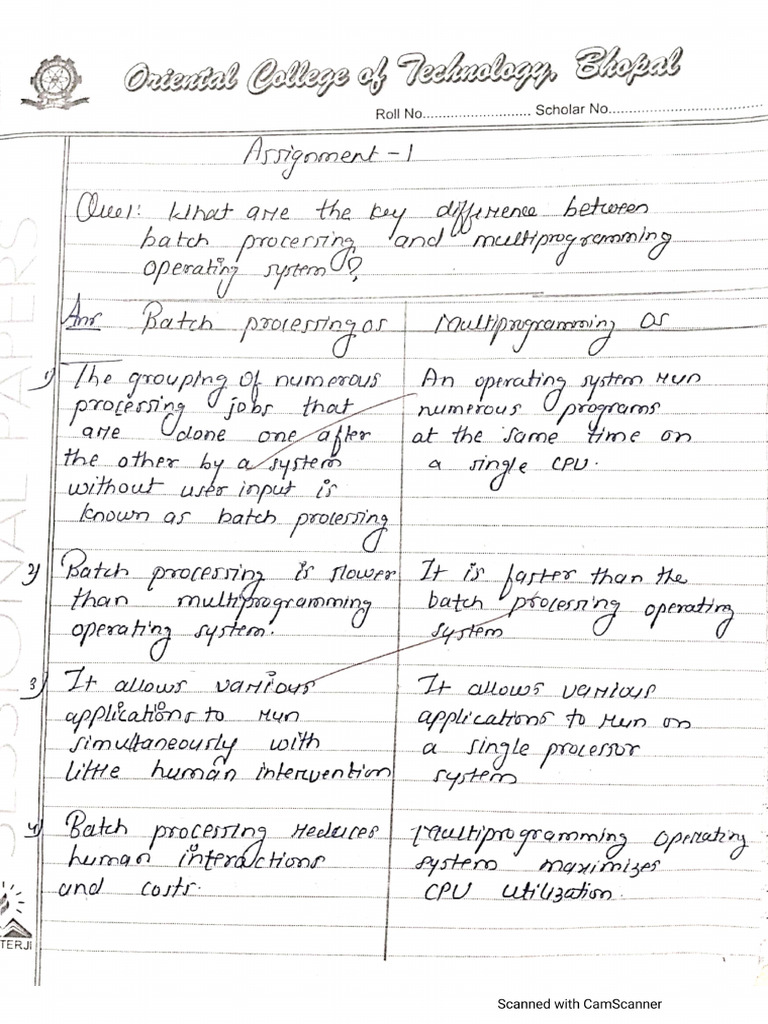 Oriental College of Technology, Bhopal
Roll No............................ Scholar No........................................
Assignment-1
Que1: What are the key difference between
batch processing and multiprogramming
operating system?
Ans Batch processing os
Multiprogramming OS
1) The grouping of numerous
processing jobs that
are done one after
the other by a system
without user input is
known as batch processing
An operating system run
numerous programs
at the same time on
a single CPU.
2) Batch processing is slower
than multiprogramming
operating system.
It is faster than the
batch processing operating
system
3) It allows various
applications to run
simultaneously with
little human intervention
It allows various
applications to run on
a single processor
system
4) Batch processing reduces
human interactions
and costs.
Multiprogramming operating
system maximizes
CPU utilization.
SESSIONAL PAPERS
TERJI
Scanned with CamScanner